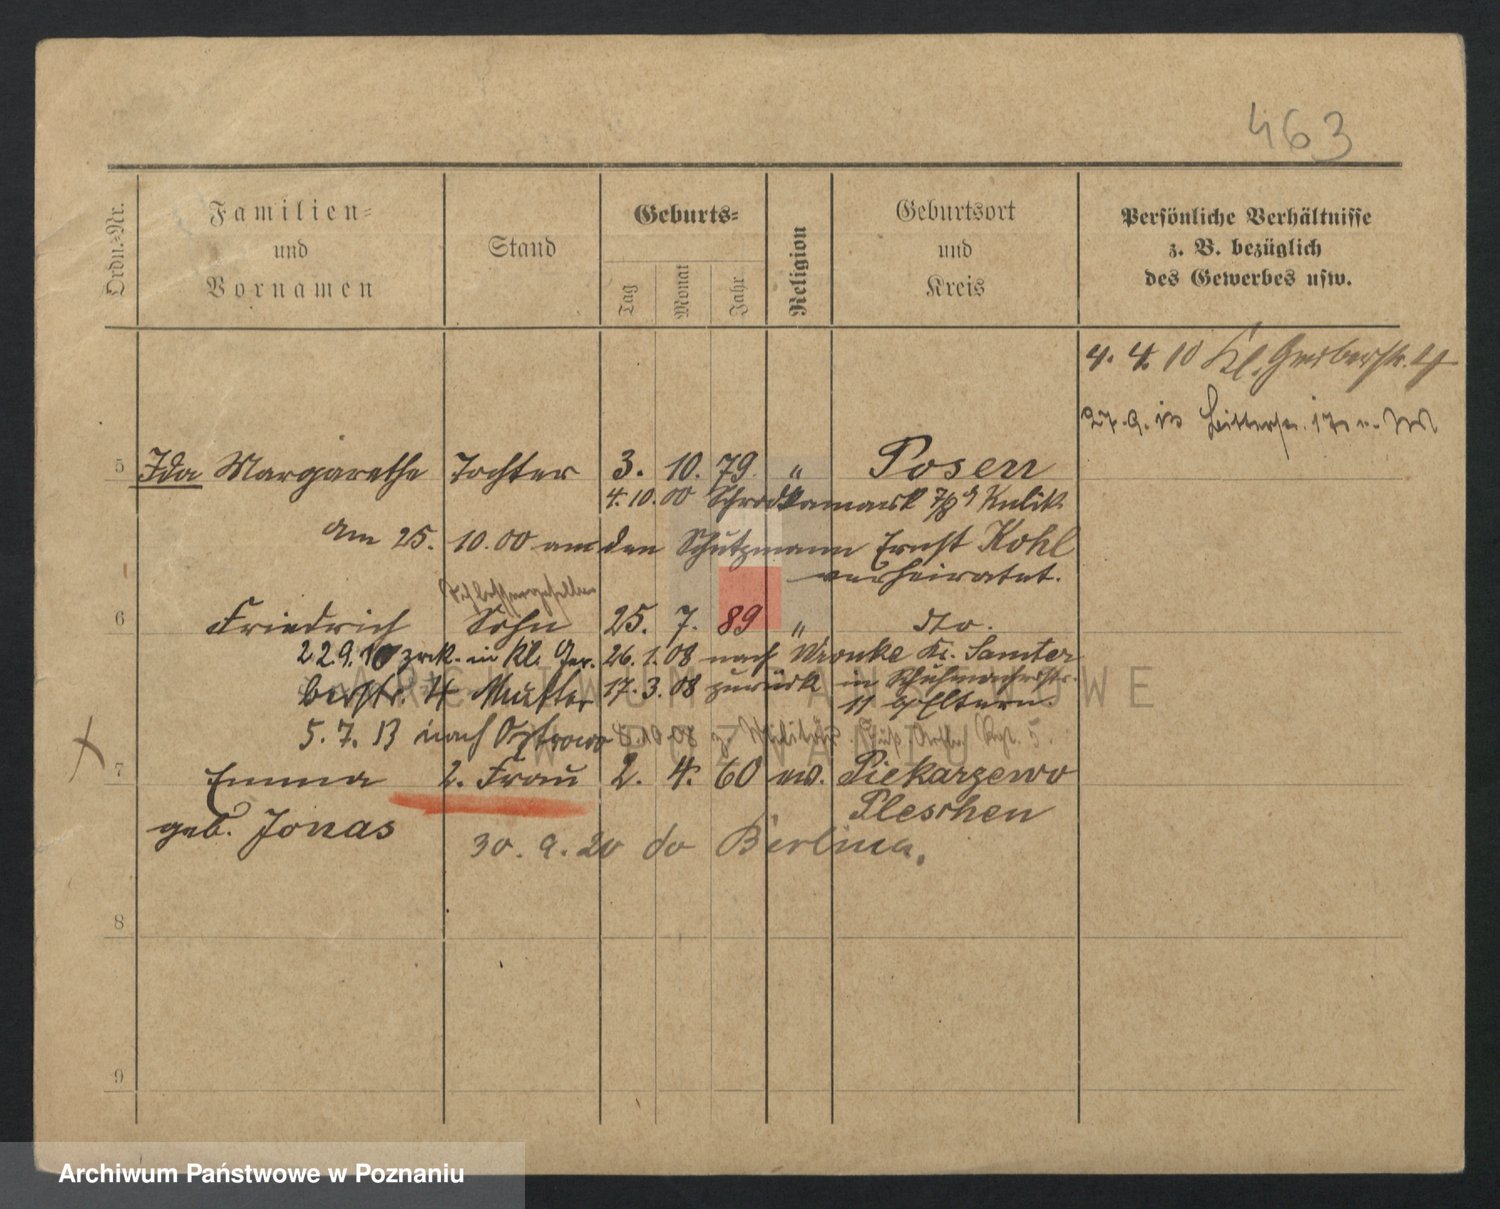 463
Ordn.-Nr.
Familien-
und
Vornamen
Stand
Geburts-
Tag
Monat
Jahr
Religion
Geburtsort
und
Kreis
Persönliche Verhältnisse
z. B. bezüglich
des Gewerbes usw.
4. 4. 10 Kl. Gerberstr. 4
27. 9.
5 Ida Margarethe Tochter 3. 10. 79 " Posen
4. 10. 00 Schrodkamark 7/8
am 25. 10. 00 an den Schutzmann Ernst Kohl
verheiratet.
Schlossergeselle
6 Friedrich Sohn 25. 7. 89 " dto.
22 9. 10 zrk. in Kl. Ger- 26. 1. 08 nach Wronke Kr. Samter
berstr. 4 Mutter 17. 3. 08 zurück in Schuhmacherstr.
11 Eltern
5. 7. 13 nach Ostrowo
7 Emma 2. Frau 2. 4. 60 ev. Piekarzewo
Pleschen
geb. Jonas
30. 9. 20 do Berlina.
8
9
ARCHIWUM PAŃSTWOWE
W POZNANIU
Archiwum Państwowe w Poznaniu